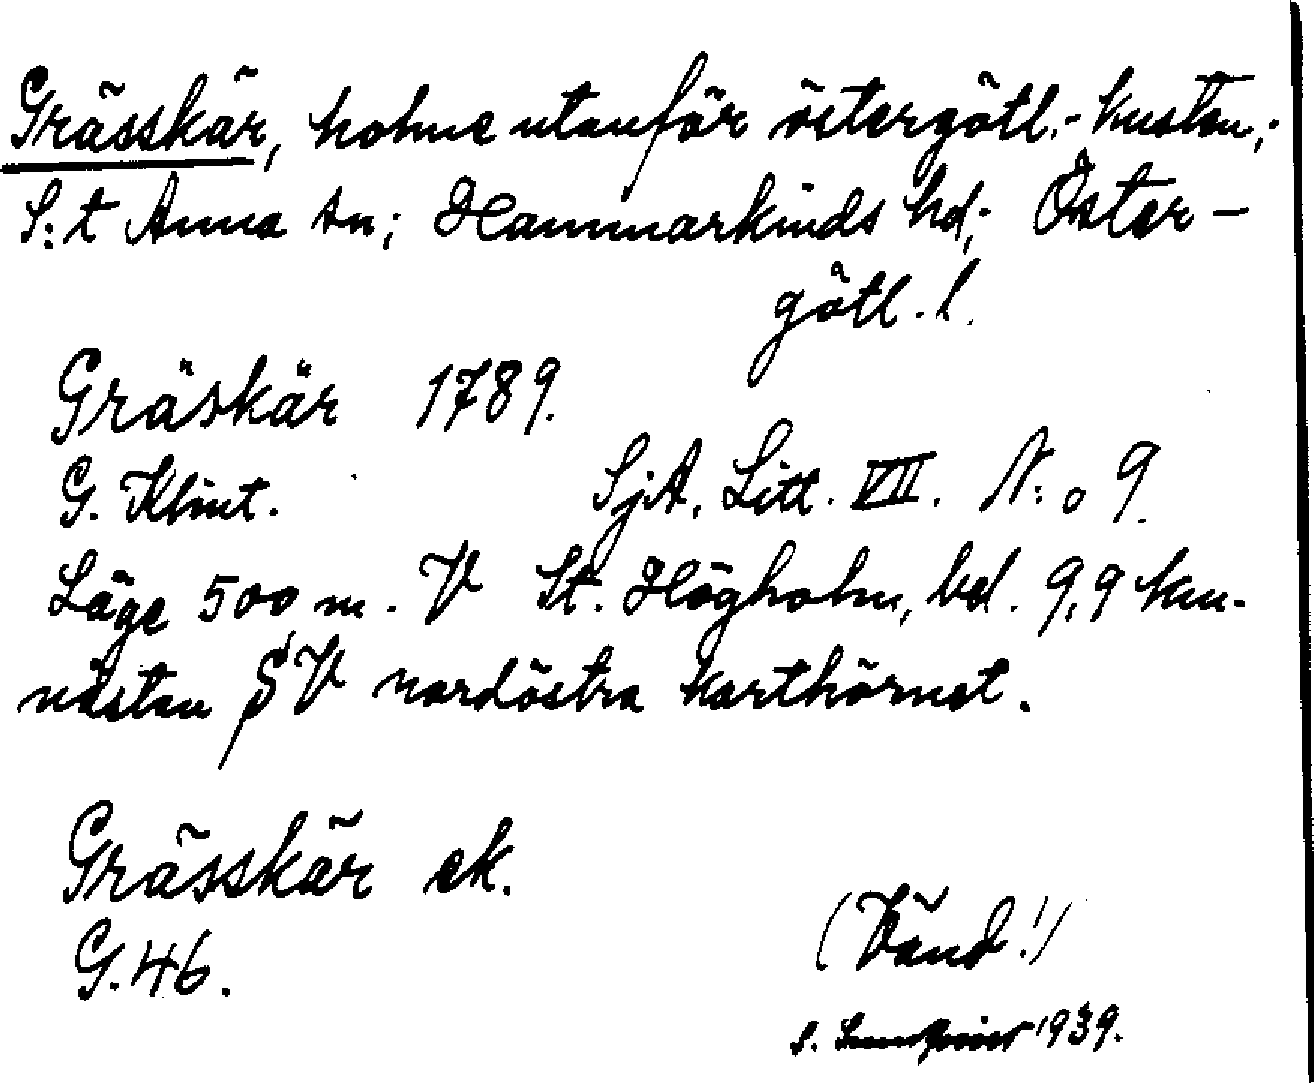 Grässkär, holme utanför östergötl.-kusten,;
S:t Anna sn; Hammarkinds hd; Öster-
götl. l.
Gräskär 1789.
G. Klint. SjA, Litt. VII. N:o 9.
Läge 500 m. V St. Högholm, bel. 9,9 km.
nästan SV nordöstra karthörnet.
Grässkär ek.
G. 46.
(Vänd!)
S. 1939.